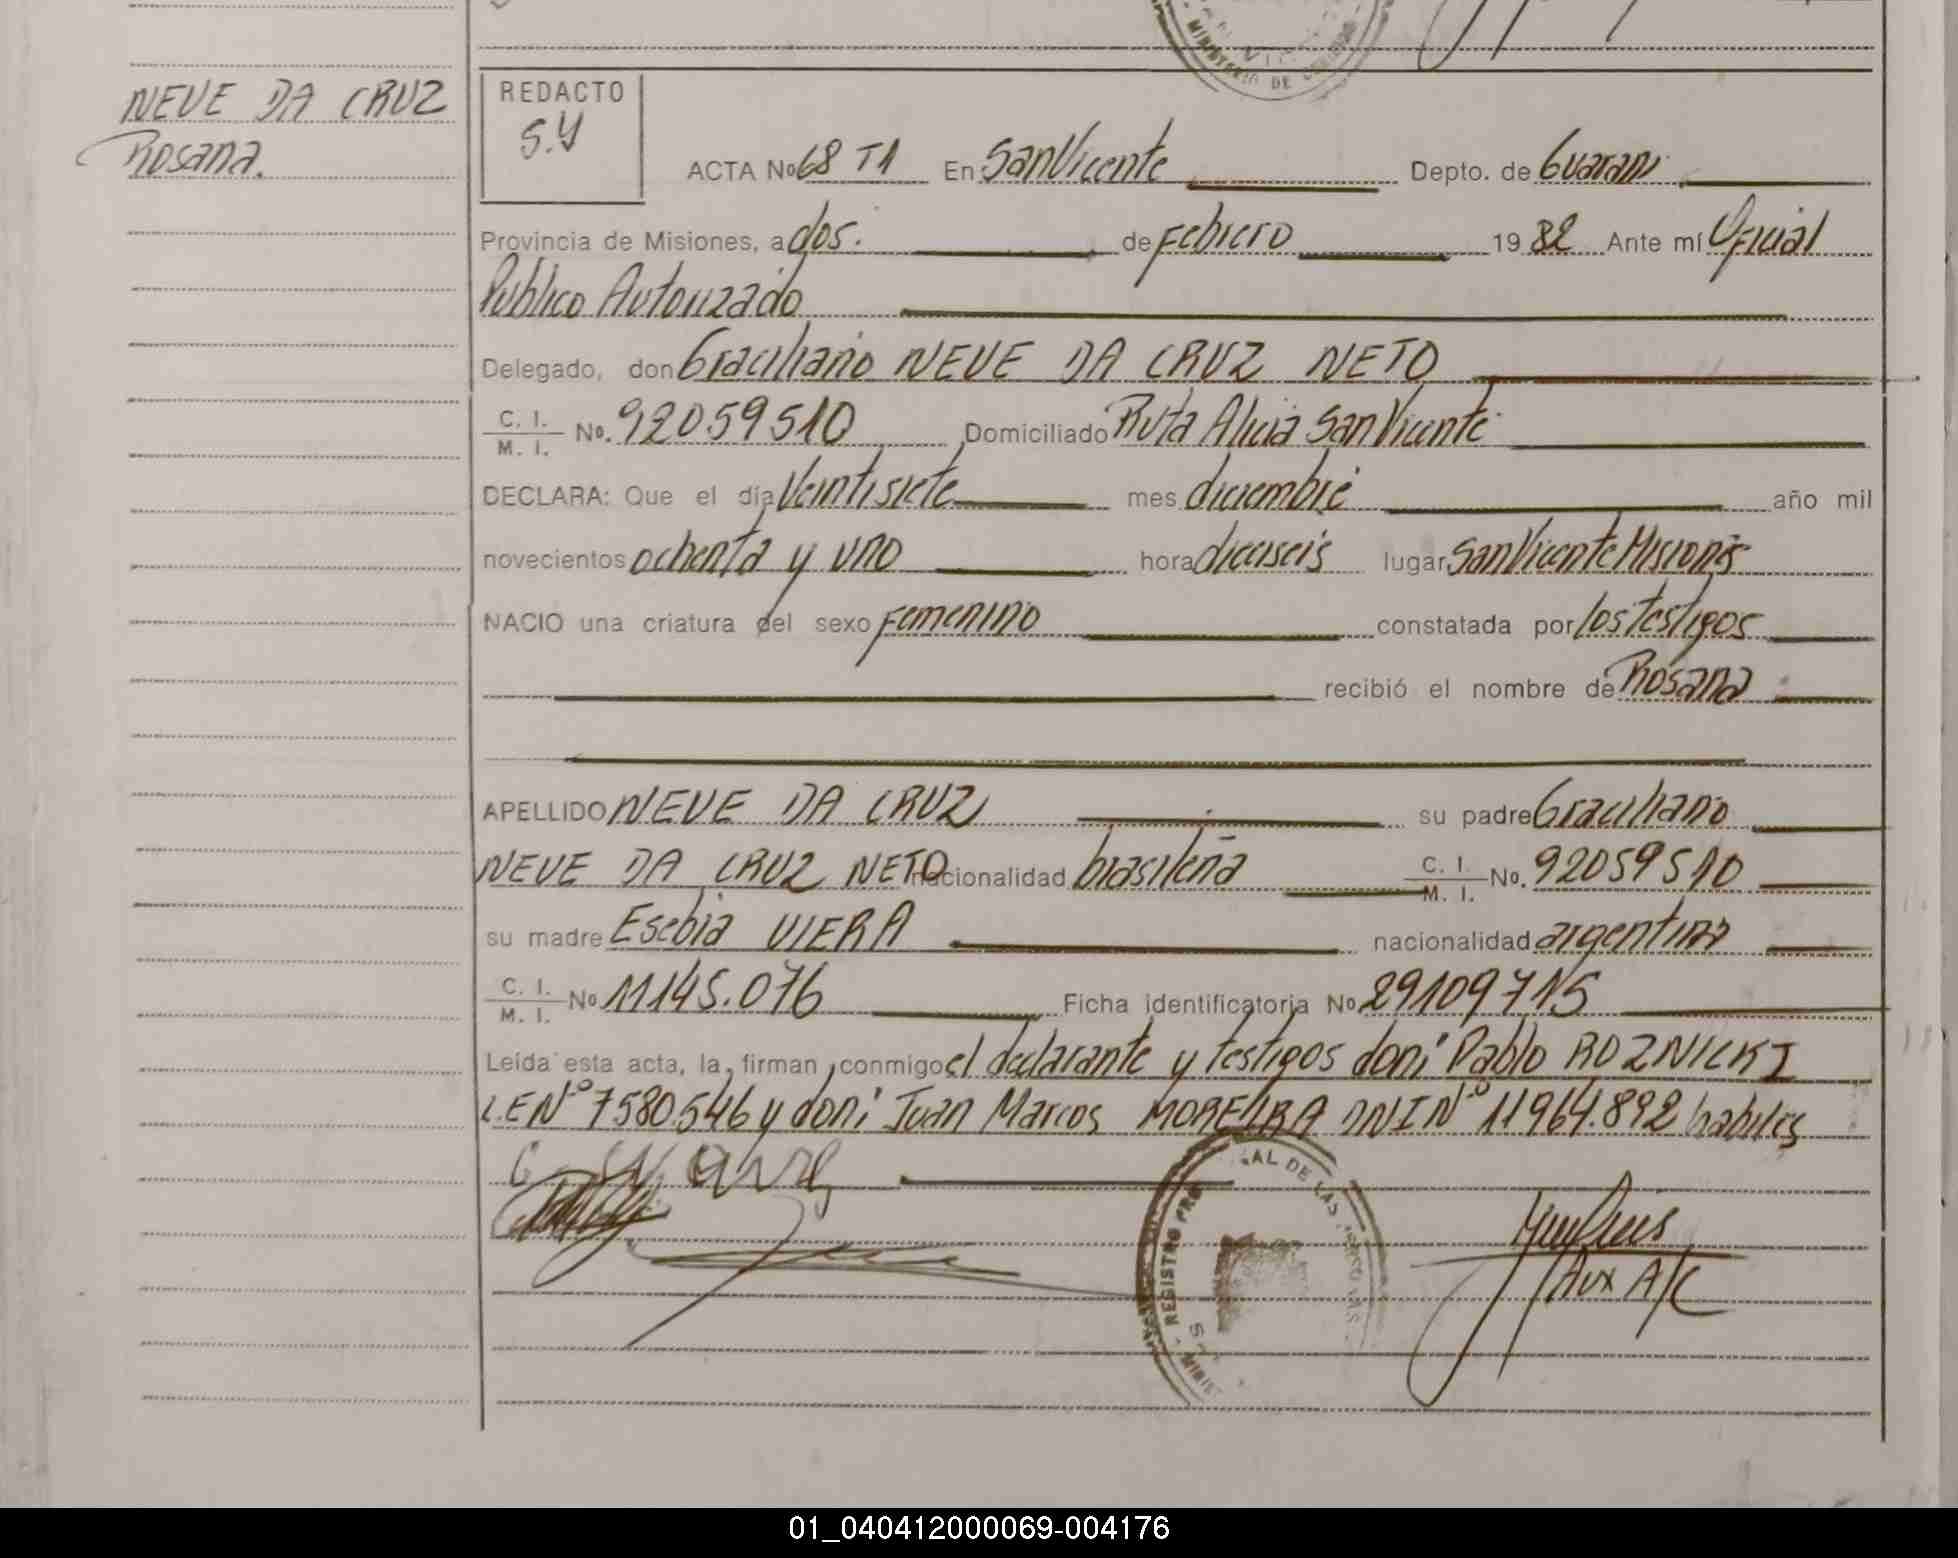 MINISTERIO DE
NEVE DA CRUZ
Rosana.
REDACTO
S.Y
ACTA No 68 T1 En San Vicente Depto. de Guarani
Provincia de Misiones, a dos. de Febrero 1982 Ante mí Oficial
Publico Autorizado
Delegado, don Graciliano NEVE DA CRUZ NETO
C. I.
M. I. No. 92059510 Domiciliado Ruta Alicia San Vicente
DECLARA: Que el día Veintisiete mes diciembre año mil
novecientos ochenta y uno hora dieciseis lugar San Vicente Misiones
NACIO una criatura del sexo Femenino constatada por los testigos
recibió el nombre de Rosana
APELLIDO NEVE DA CRUZ su padre Graciliano
NEVE DA CRUZ NETO nacionalidad brasileña C. I.
M. I. No. 92059510
su madre Esebia VIERA nacionalidad argentina
C. I.
M. I. No 11145.076 Ficha identificatoria No 29109715
Leída esta acta, la firman conmigo el declarante y testigos don: Pablo ROZNICKI
L.E Nº 7580.546 y don: Juan Marcos MOREIRA DNI Nº 11964.892 habiles
REGISTRO AL DE LAS
Aux A/C
01_040412000069-004176